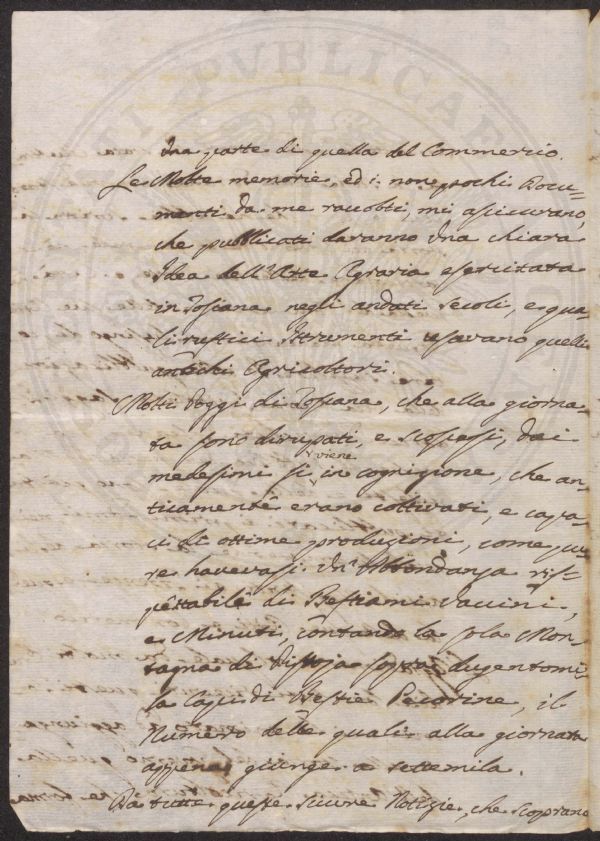 una parte di quella del Commercio.
Le Molte memorie, ed i non pochi Docu-
menti da me racolti, mi asicurano,
che pubblicati daranno una chiara
Idea dell'Arte Agraria esercitata
in Toscana negli andati secoli, e qua-
li rustici Istrumenti usavano quelli
antichi Agricoltori.
Molti Poggi di Toscana, che alla giorna-
ta sono dirupati, e scoscesi, dai
medesimi si viene in cognizione, che an-
ticamente erano coltivati, e capa-
ci di ottime produzioni, come pu-
re havevasi un'Abbondanza ris-
pettabile di Bestiami Vaccini,
e Minuti, contando la sola Mon-
tagna di Pistoja sopra dugentomi-
la Capi di Bestie Pecorine, il
Numero delle quali alla giornata
appena giunge a settemila.
Da tutte queste sicure Notizie, che scoprano